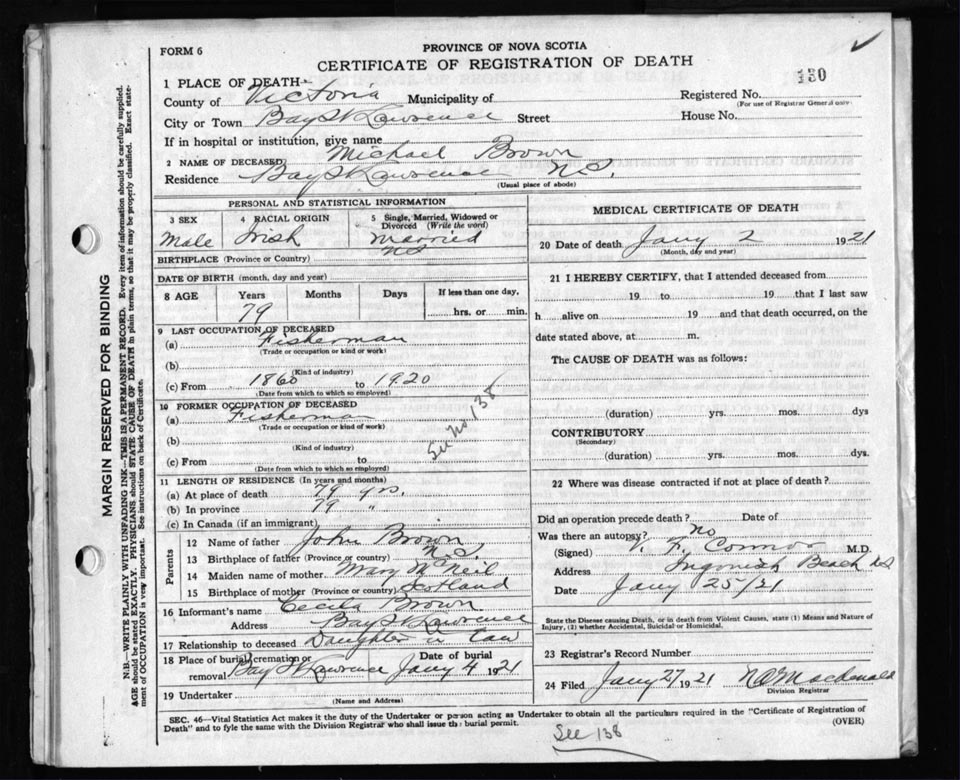 FORM 6
PROVINCE OF NOVA SCOTIA
CERTIFICATE OF REGISTRATION OF DEATH
130
1 PLACE OF DEATH—
County of Victoria Municipality of
Registered No.
(For use of Registrar General only
City or Town Bay St Lawrence Street
House No.
If in hospital or institution, give name
2 NAME OF DECEASED Michael Brown
Residence Bay St Lawrence N.S.
(Usual place of abode)
PERSONAL AND STATISTICAL INFORMATION
3 SEX Male
4 RACIAL ORIGIN Irish
5 Single, Married, Widowed or Divorced (Write the word) Married
BIRTHPLACE (Province or Country) NS
DATE OF BIRTH (month, day and year)
8 AGE Years Months Days If less than one day,
79 hrs. or min.
9 LAST OCCUPATION OF DECEASED
(a) Fisherman
(Trade or occupation or kind or work)
(b)
(Kind of industry)
(c) From 1860 to 1920
(Date from which to which so employed)
10 FORMER OCCUPATION OF DECEASED
(a) Fisherman
(Trade or occupation or kind of work)
(b)
(Kind of industry)
(c) From to
(Date from which to which so employed)
See No 138
11 LENGTH OF RESIDENCE (In years and months)
(a) At place of death 79 yrs.
(b) In province 79 "
(c) In Canada (if an immigrant)
Parents
12 Name of father John Brown
13 Birthplace of father (Province or country) N.S.
14 Maiden name of mother Mary McNeil
15 Birthplace of mother (Province or country) Scotland
16 Informant's name Cecila Brown
Address Bay St Lawrence
17 Relationship to deceased Daughter in Law
18 Place of burial, cremation or removal Bay St Lawrence Date of burial Jany 4 1921
19 Undertaker
(Name and Address)
MEDICAL CERTIFICATE OF DEATH
20 Date of death Jany 2 1921
(Month, day and year)
21 I HEREBY CERTIFY, that I attended deceased from
19 to 19 that I last saw
h alive on 19 and that death occurred, on the
date stated above, at m.
The CAUSE OF DEATH was as follows:
(duration) yrs. mos. dys
CONTRIBUTORY
(Secondary)
(duration) yrs. mos. dys.
22 Where was disease contracted if not at place of death?
Did an operation precede death? Date of
Was there an autopsy? no
(Signed) Connor M.D.
Address Ingonish Beach NS
Date Jany 25/21
State the Disease causing Death, or in death from Violent Causes, state (1) Means and Nature of
Injury, (2) whether Accidental, Suicidal or Homicidal.
23 Registrar's Record Number
24 Filed Jany 27 1921 Macdonald
Division Registrar
SEC. 46—Vital Statistics Act makes it the duty of the Undertaker or person acting as Undertaker to obtain all the particulars required in the "Certificate of Registration of
Death" and to fyle the same with the Division Registrar who shall issue the burial permit.
(OVER)
See 138
MARGIN RESERVED FOR BINDING
N.B.—WRITE PLAINLY WITH UNFADING INK—THIS IS A PERMANENT RECORD. Every item of information should be carefully supplied.
AGE should be stated EXACTLY. PHYSICIANS should STATE CAUSE OF DEATH in plain terms, so that it may be properly classified. Exact statement of OCCUPATION is very important. See instructions on back of Certificate.